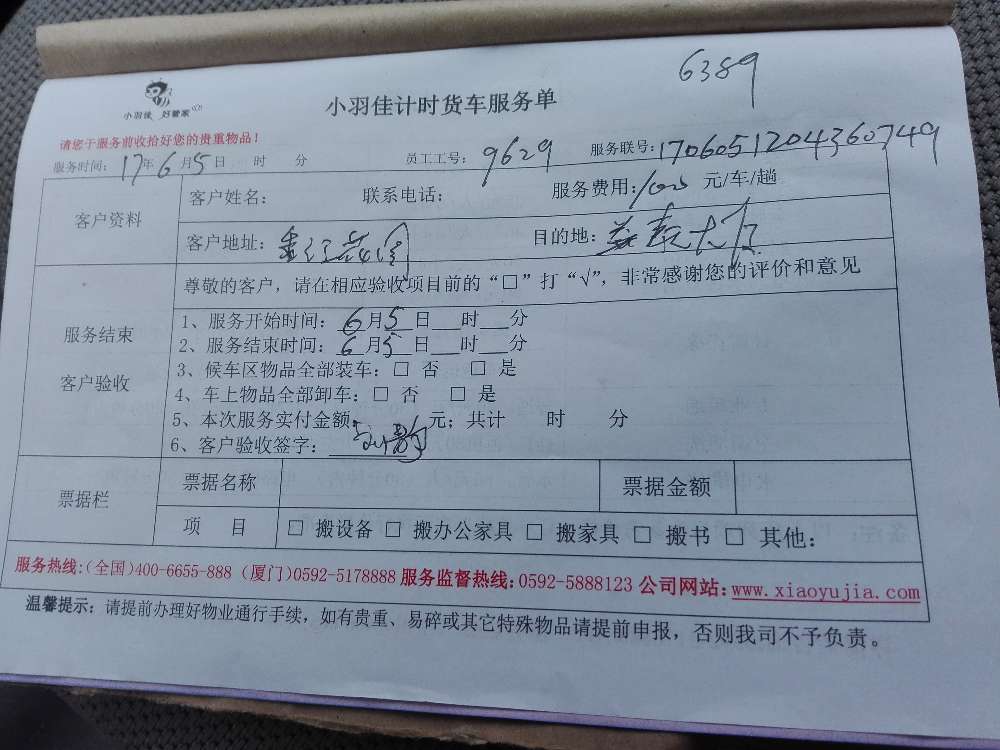 6389
小羽佳 好管家
小羽佳计时货车服务单
请您于服务前收拾好您的贵重物品！
服务时间：17年6月5日 时 分 员工工号：9629 服务联号：1706051204360749
客户资料 客户姓名： 联系电话： 服务费用：100 元/车/趟
客户地址： 花园 目的地： 大厦
尊敬的客户，请在相应验收项目前的“□”打“√”，非常感谢您的评价和意见
服务结束
客户验收
1、服务开始时间：6月5日__时__分
2、服务结束时间：6月5日__时__分
3、候车区物品全部装车：□ 否 □ 是
4、车上物品全部卸车：□ 否 □ 是
5、本次服务实付金额： 元；共计 时 分
6、客户验收签字：
票据栏 票据名称 票据金额
项 目 □ 搬设备 □ 搬办公家具 □ 搬家具 □ 搬书 □ 其他：
服务热线:(全国)400-6655-888 (厦门)0592-5178888 服务监督热线:0592-5888123 公司网站:www.xiaoyujia.com
温馨提示：请提前办理好物业通行手续，如有贵重、易碎或其它特殊物品请提前申报，否则我司不予负责。